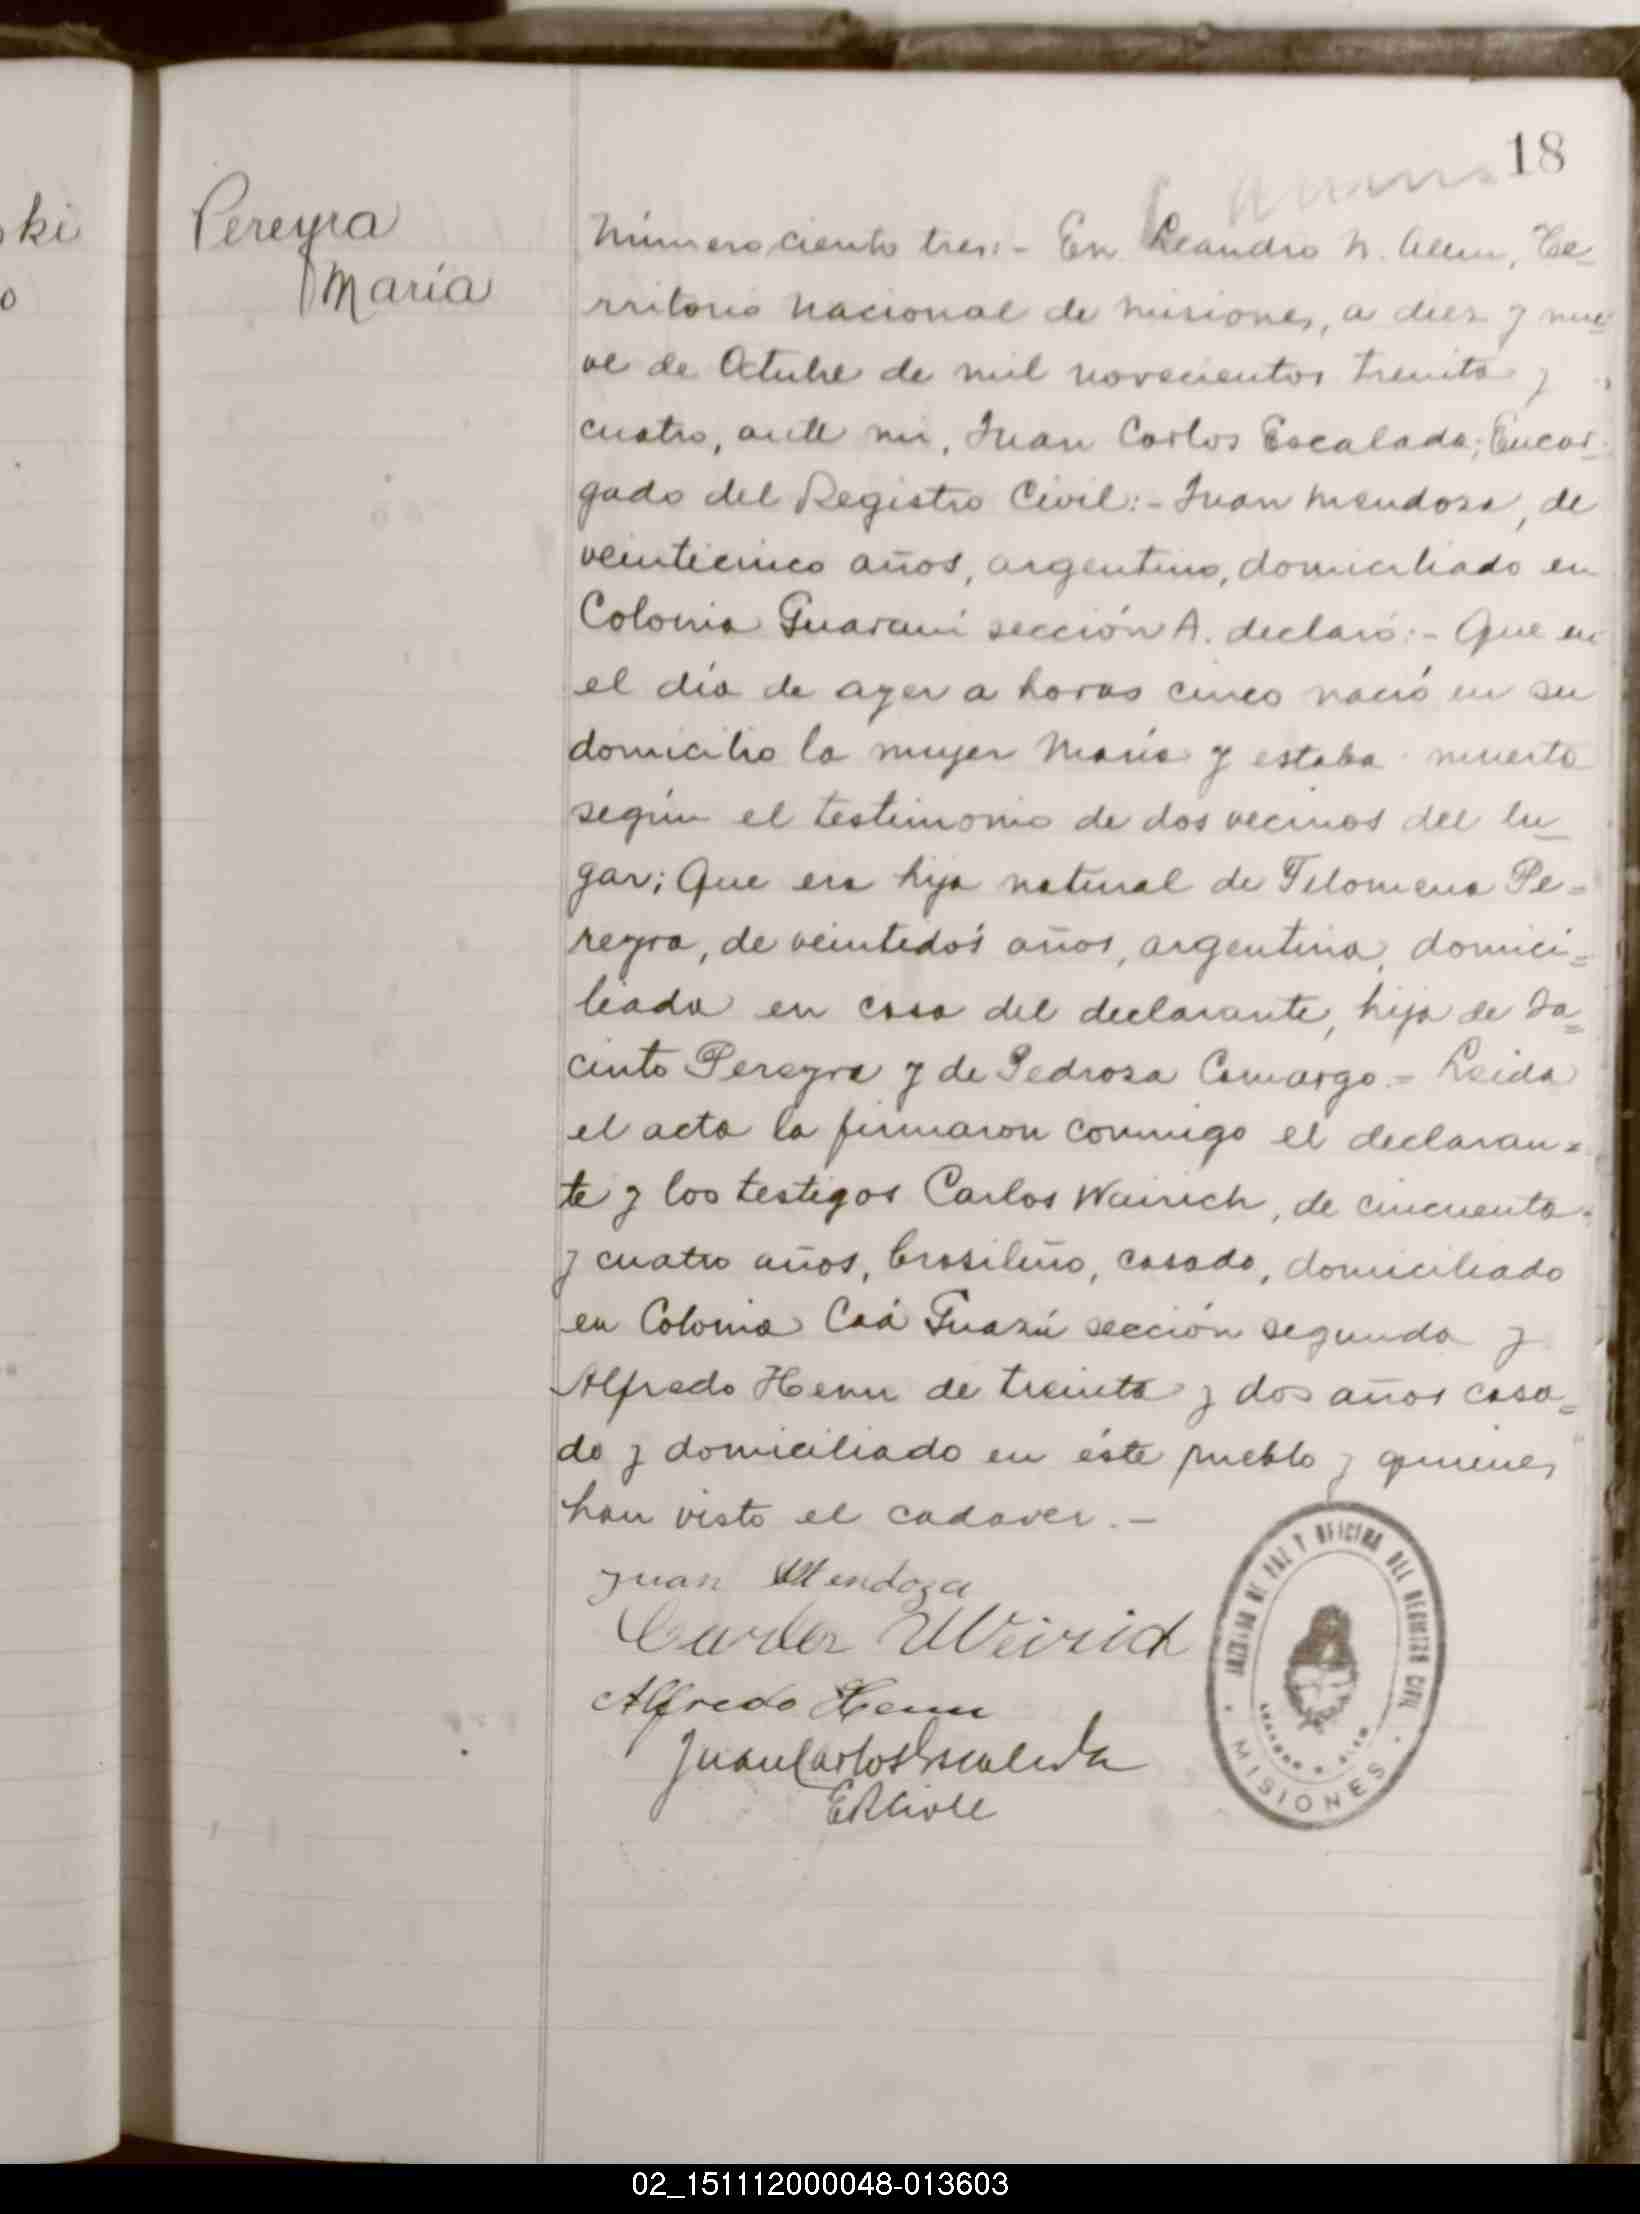 ki
o
18
Pereyra
María
Número ciento tres:- En Leandro N. Alem, Te-
rritorio Nacional de Misiones, a diez y nue-
ve de Octubre de mil novecientos treinta y
cuatro, ante mi, Juan Carlos Escalada, Encar-
gado del Registro Civil:- Juan Mendoza, de
veinticinco años, argentino, domiciliado en
Colonia Guaraní sección A. declaró:- Que en
el día de ayer a horas cinco nació en su
domicilio la mujer María y estaba muerta
según el testimonio de dos vecinos del lu-
gar; Que era hija natural de Filomena Pe=
reyra, de veintidós años, argentina, domici=
liada en casa del declarante, hija de Ja=
cinto Pereyra y de Pedrosa Camargo.= Leida
el acta la firmaron conmigo el declaran=
te y los testigos Carlos Wairich, de cincuenta
y cuatro años, brasileño, casado, domiciliado
en Colonia Caá Guazú sección segunda y
Alfredo Henn de treinta y dos años casa=
do y domiciliado en éste pueblo y quienes
han visto el cadaver.-
Juan Mendoza
Carlos Weirich
Alfredo Henn
Juan Carlos Escalada
JUZGADO DE PAZ Y OFICINA DEL REGISTRO CIVIL
LEANDRO N. ALEM
MISIONES
02_151112000048-013603